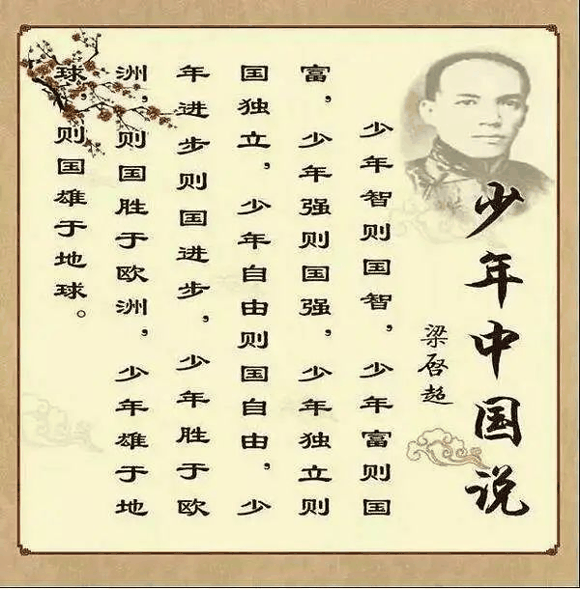 少年中国说
梁启超
少年智则国智，少年富则国
富，少年强则国强，少年独立则
国独立，少年自由则国自由，少
年进步则国进步，少年胜于欧
洲，则国胜于欧洲，少年雄于地
球，则国雄于地球。